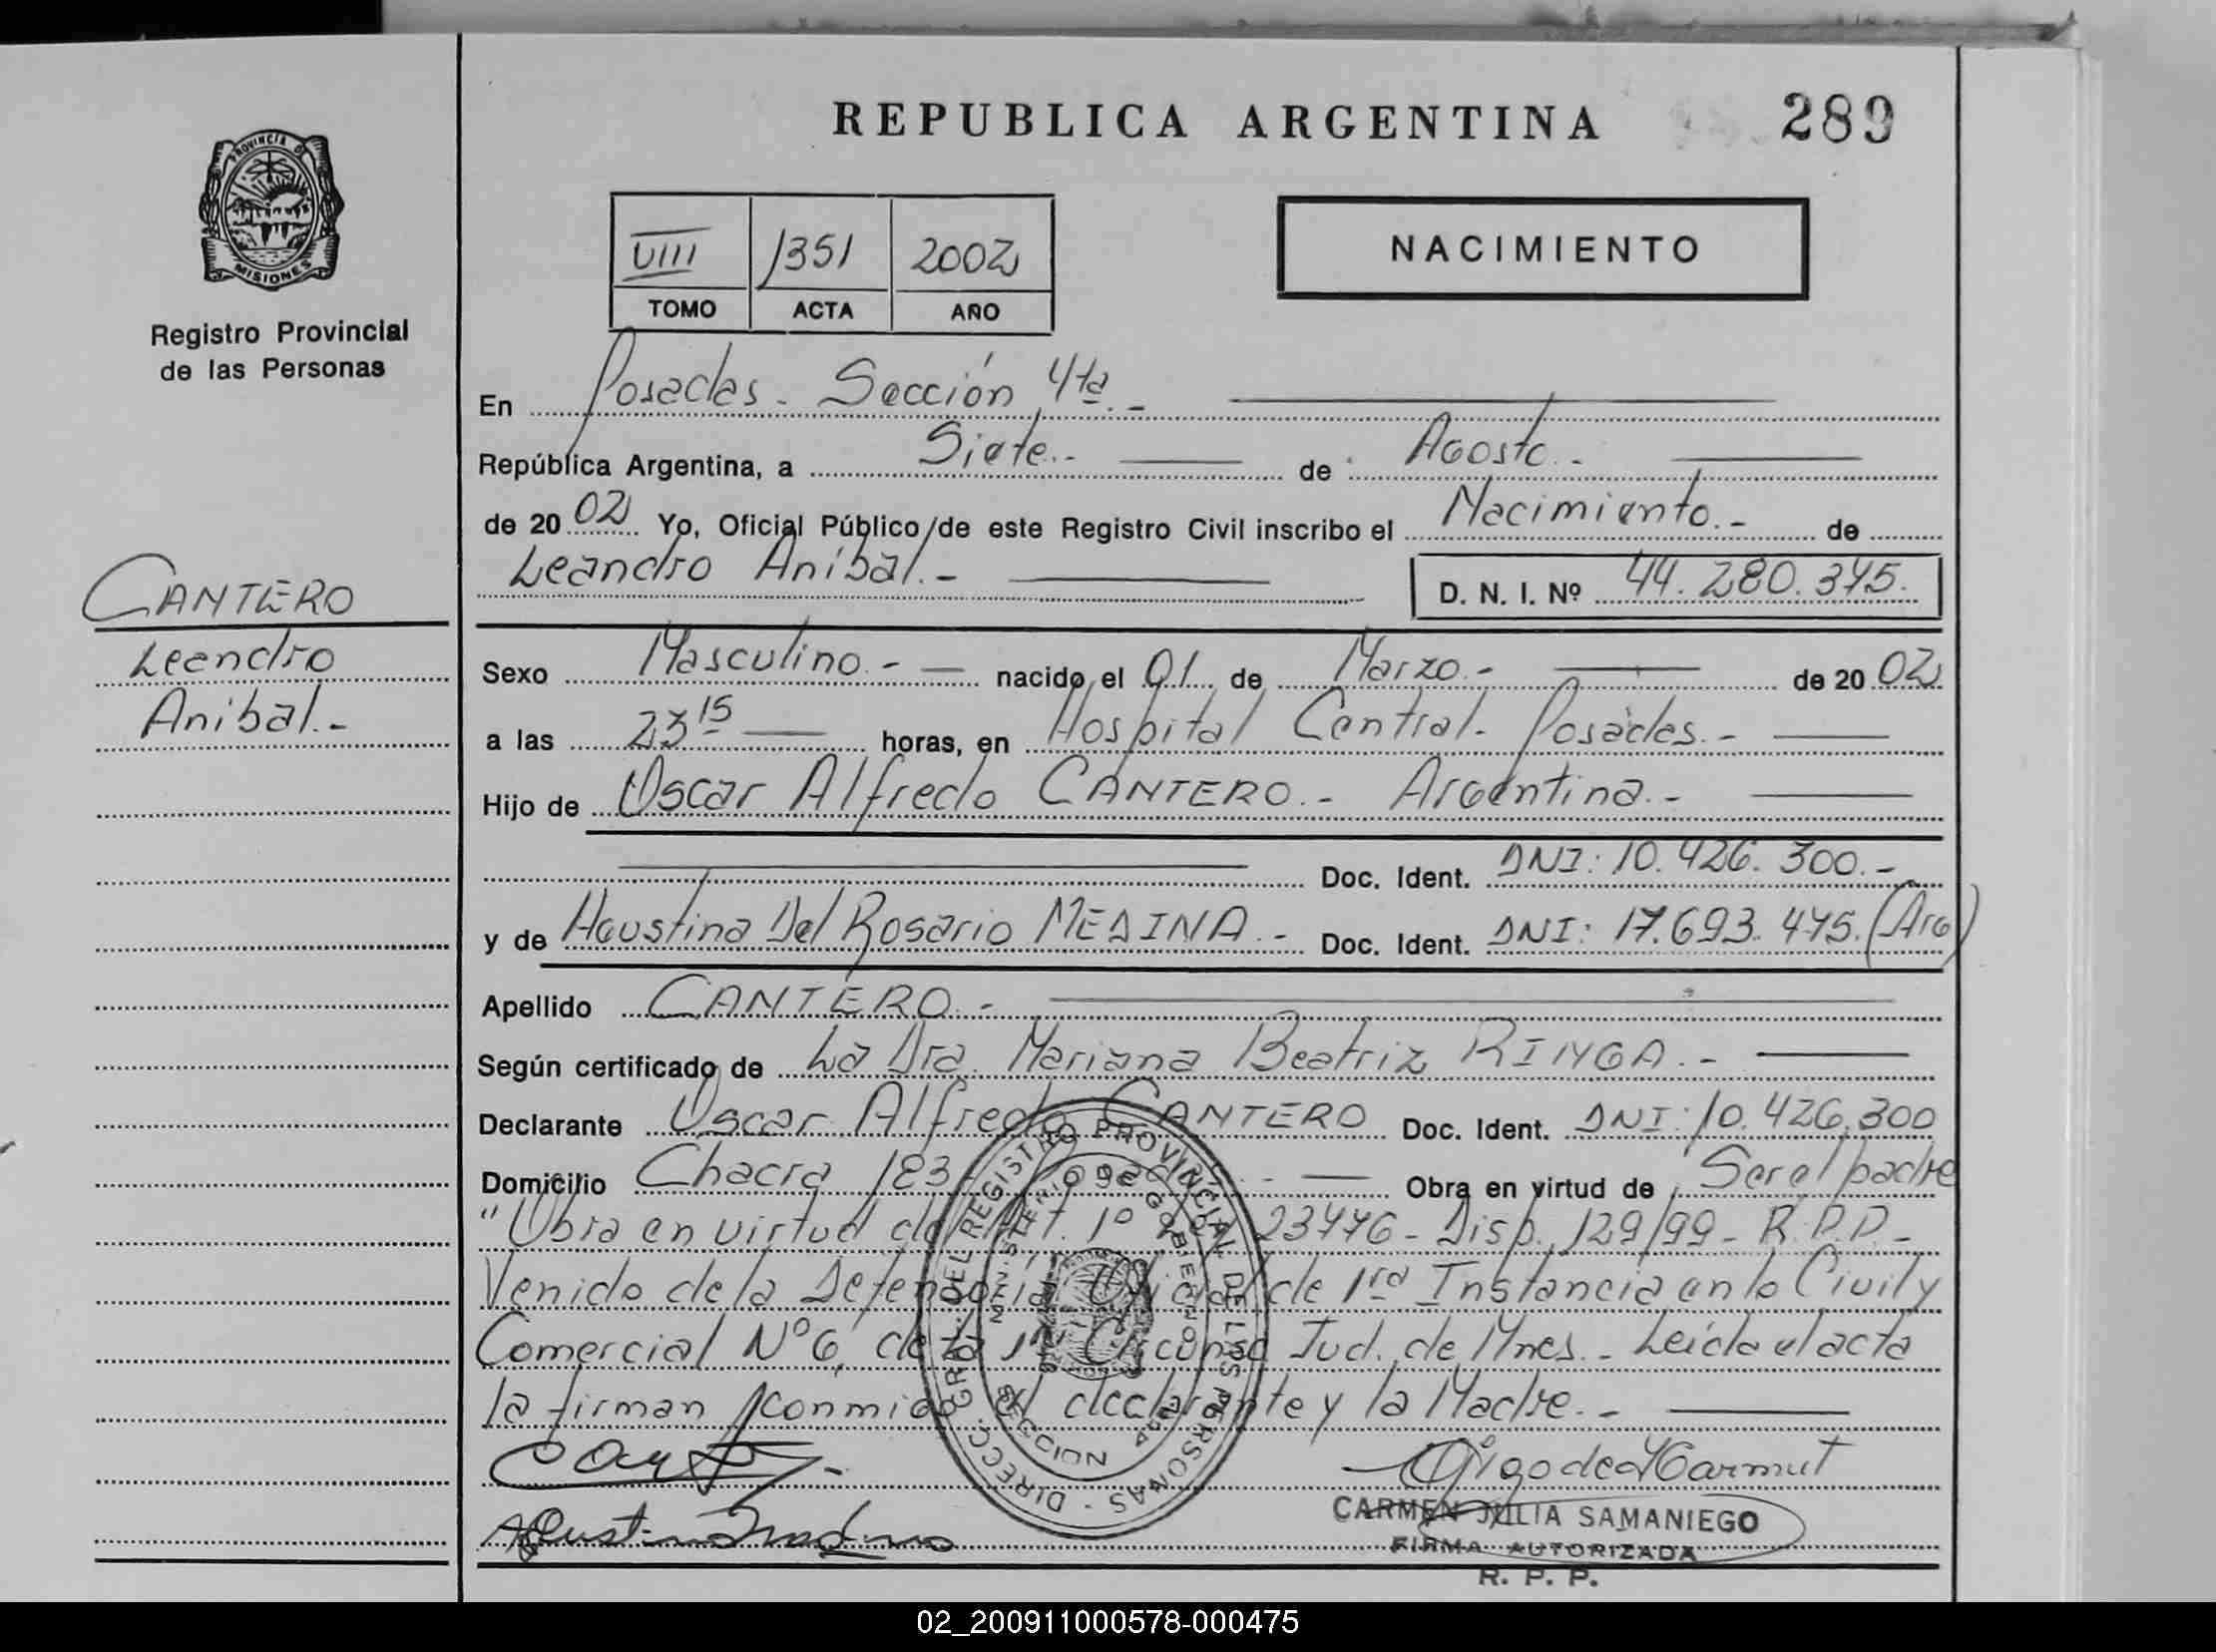 REPUBLICA ARGENTINA 289
PROVINCIA DE
MISIONES
Registro Provincial
de las Personas
VIII 1351 2002
TOMO ACTA AÑO
NACIMIENTO
En Posadas - Sección 4ta.-
República Argentina, a Siete.- de Agosto.-
de 2002 Yo, Oficial Público de este Registro Civil inscribo el Nacimiento.- de
Leandro Aníbal.- D. N. I. Nº 44.280.375.
CANTERO
Leandro
Anibal.-
Sexo Masculino.- nacido el 01 de Marzo.- de 2002
a las 23 15 horas, en Hospital Central. Posadas.-
Hijo de Oscar Alfredo CANTERO.- Argentina.-
Doc. Ident. DNI: 10.426.300.-
y de Agustina Del Rosario MEDINA.- Doc. Ident. DNI: 17.693.475. (Arg)
Apellido CANTERO.-
Según certificado de La Dra. Mariana Beatriz RINGA.-
Declarante Oscar Alfredo CANTERO Doc. Ident. DNI: 10.426.300
Domicilio Chacra 183 Obra en virtud de Ser el padre
"Obra en virtud del Art. 1º Ley 23776 - Disp. 129/99 - R.P.P.-
Venido de la Defensoría Oficial de 1ra Instancia en lo Civil y
Comercial Nº 6, de la 1ª Circunsc. Jud. de Mnes.- Leída el acta
la firman conmigo el declarante y la Madre.-
DIRECC. GRAL. DEL REGISTRO PROVINCIAL DE LAS PERSONAS
MINISTERIO DE GOBIERNO
SECCION 4ta
Agustina Medina
CARMEN JULIA SAMANIEGO
FIRMA AUTORIZADA
R. P. P.
02_200911000578-000475